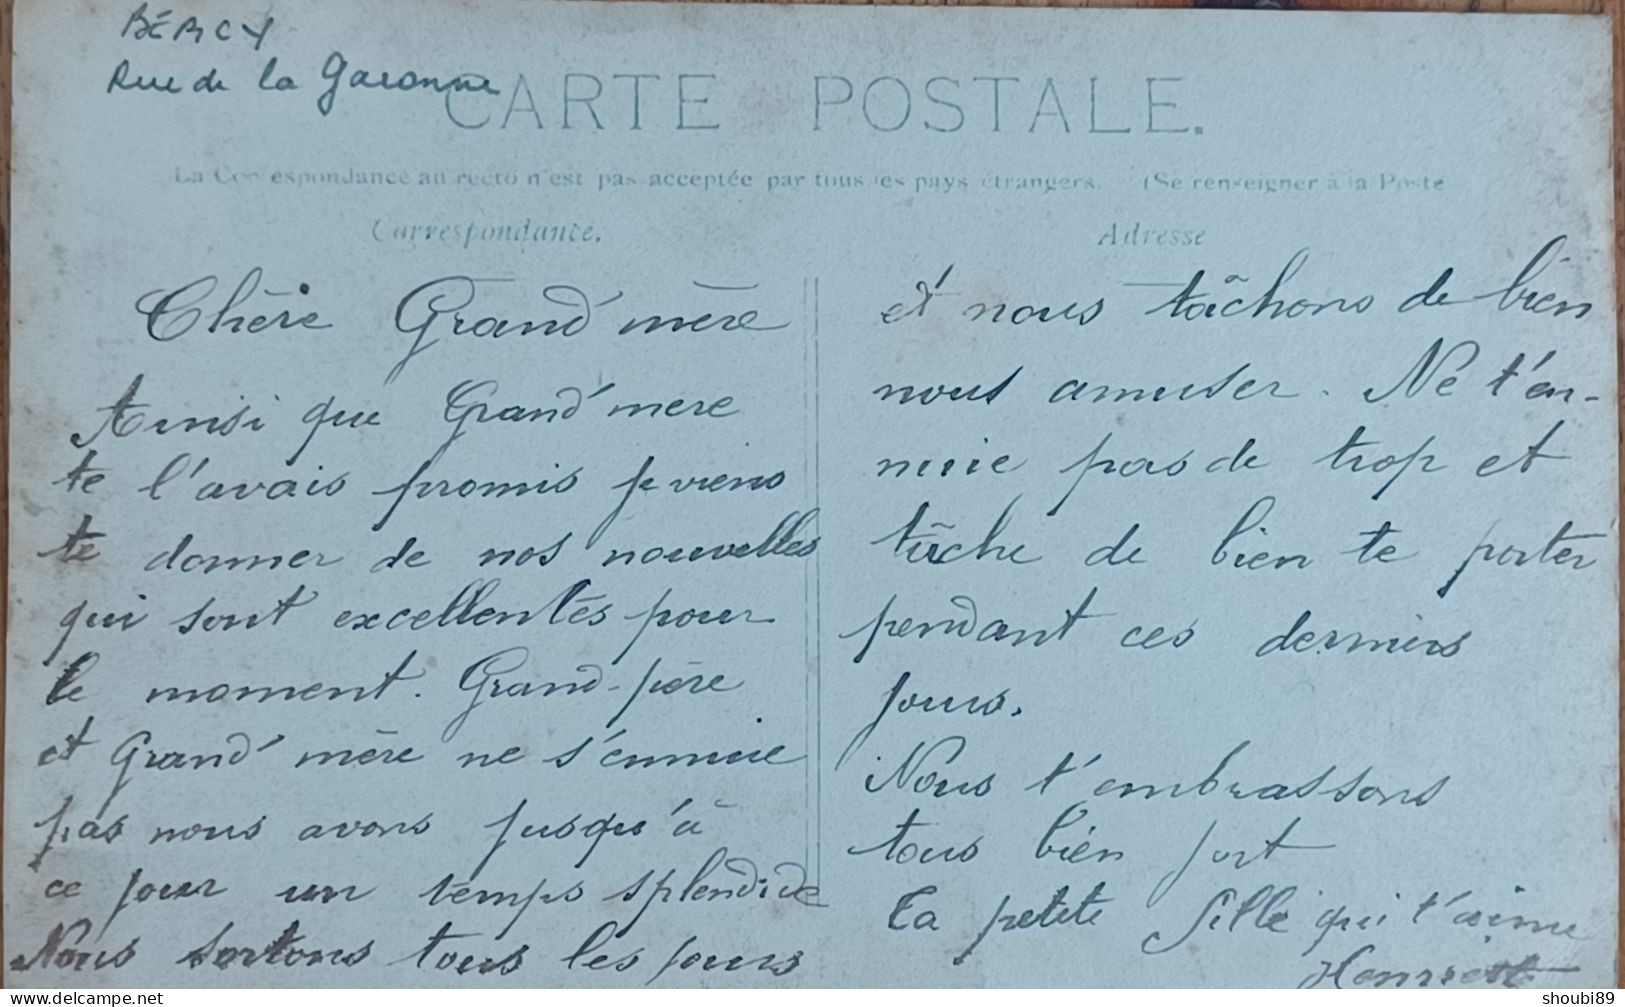 BÉRCY
Rue de la Garonne
CARTE POSTALE.
La Correspondance au recto n'est pas acceptée par tous les pays étrangers. (Se renseigner à la Poste
Correspondance.
Chère Grand'mère
Ainsi que Grand'mère
te l'avais promis je viens
te donner de nos nouvelles
qui sont excellentes pour
le moment. Grand-père
et Grand'mère ne s'ennuie
pas nous avons jusqu'à
ce jour un temps splendide
Nous sortons tous les jours
Adresse
et nous tâchons de bien
nous amuser. Ne t'en-
nuie pas de trop et
tâche de bien te porter
pendant ces derniers
jours.
Nous t'embrassons
tous bien fort
Ta petite fille qui t'aime
Henriette
shoubi89
delcampe.net